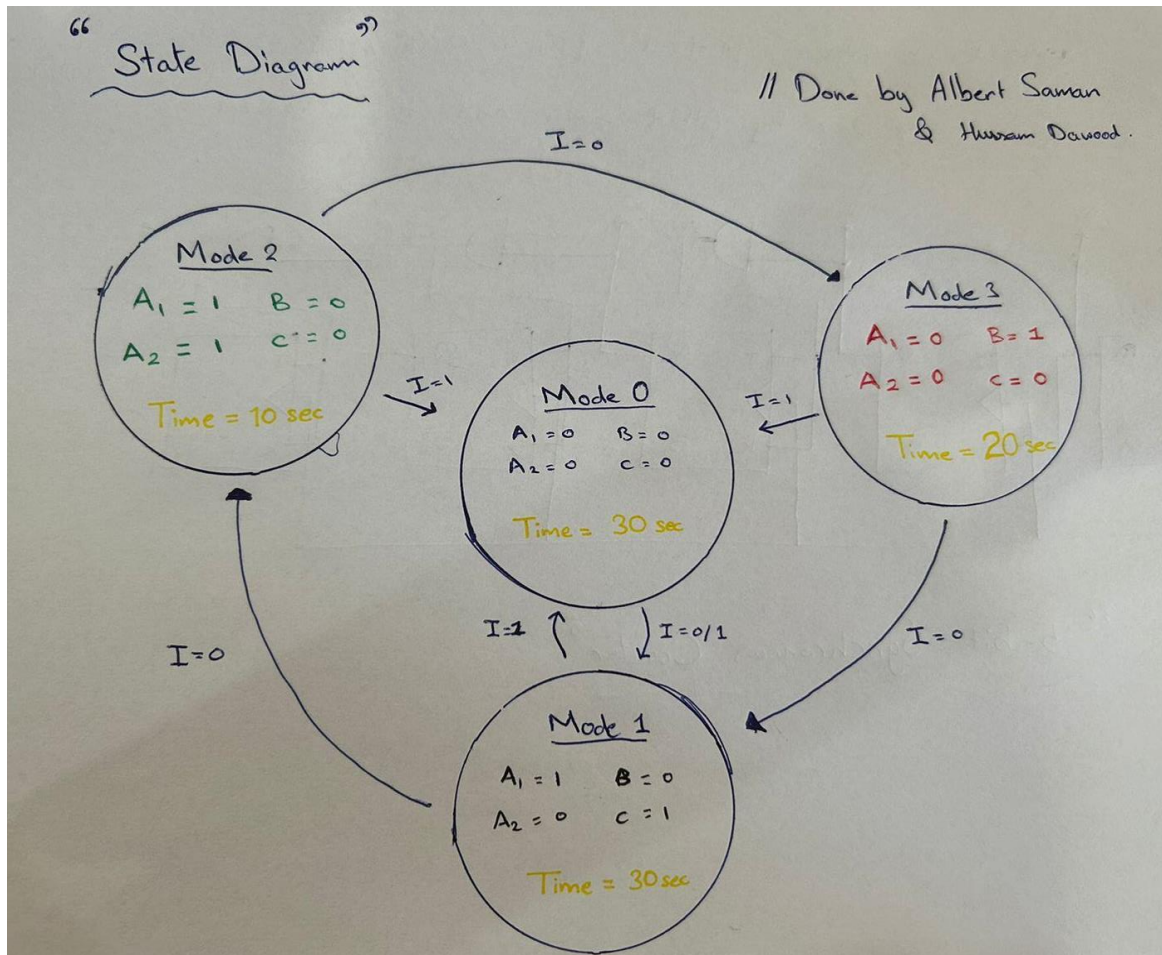 “ State Diagram ”
// Done by Albert Saman
& Hussam Dawood.
I=0
Mode 2
A₁ = 1 B = 0
A₂ = 1 C = 0
Time = 10 sec
Mode 3
A₁ = 0 B = 1
A₂ = 0 C = 0
Time = 20 sec
I=1
I=1
Mode 0
A₁ = 0 B = 0
A₂ = 0 C = 0
Time = 30 sec
I=1
I=0/1
I=0
I=0
Mode 1
A₁ = 1 B = 0
A₂ = 0 C = 1
Time = 30 sec